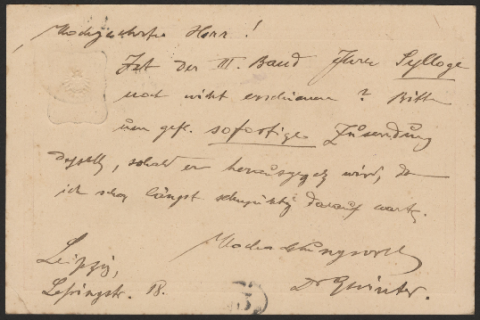 Hochgeehrter Herr!
Ist der III. Band Ihrer Sylloge
noch nicht erschienen? Bitte
um gefl. sofortige Zusendung
desselb, sobald er herausgegeb wird, da
ich schon längst sehnsüchtig darauf warte.
Hochachtungsvoll
Leipzig,
Lessingstr. 18.
Dr